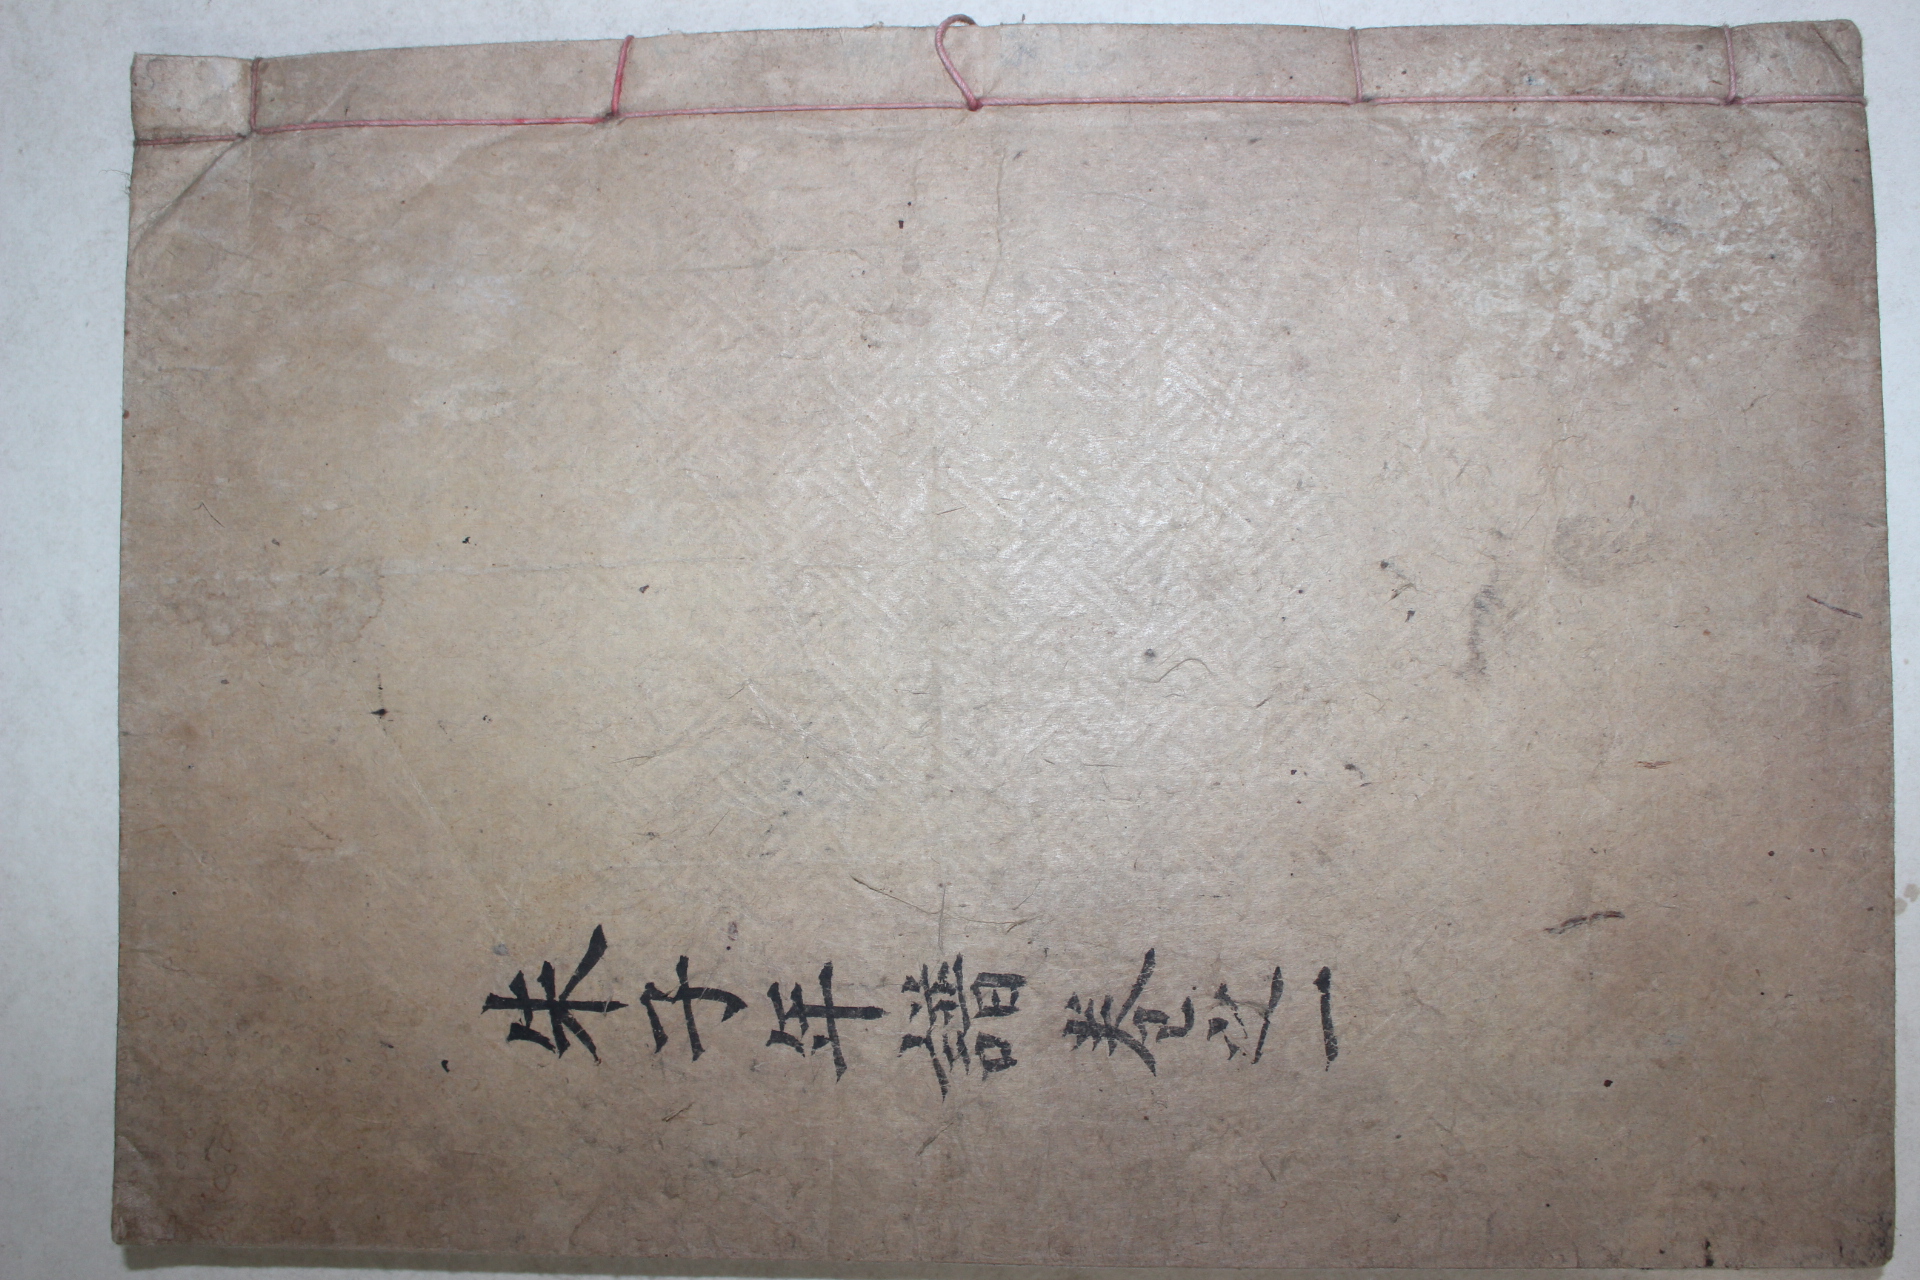 朱子年譜卷之一